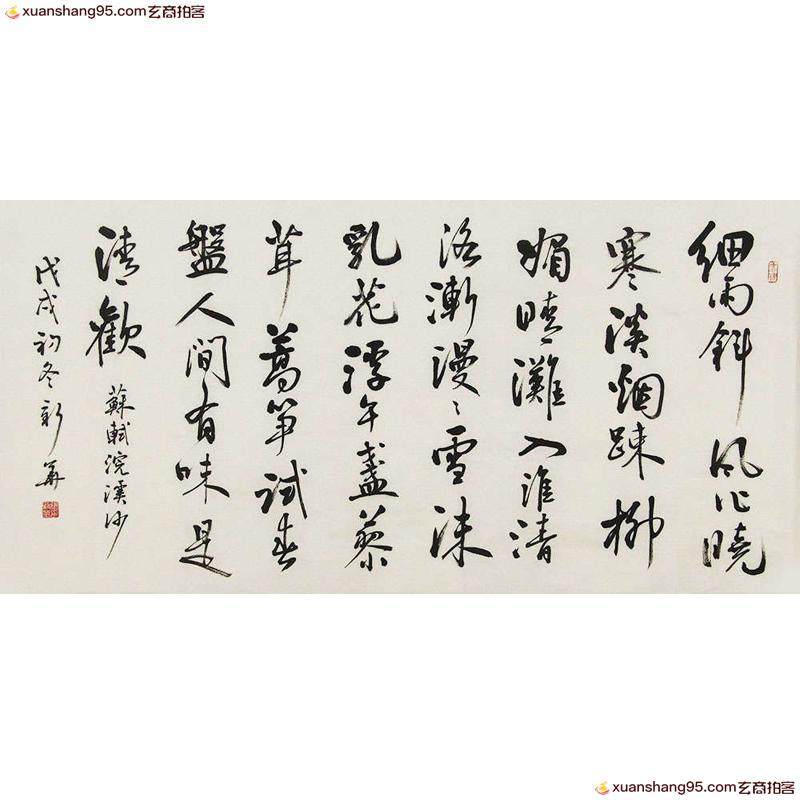 xuanshang95.com玄商拍客
xuanshang95.com玄商拍客
細雨斜风作曉
寒淡烟疎柳
媚晴灘入淮清
洛漸漫〻雪沫
乳花浮午盞蓼
茸蒿笋試春
盤人間有味是
清歡
蘇軾浣溪沙
戊戌初冬新華
xuanshang95.com玄商拍客